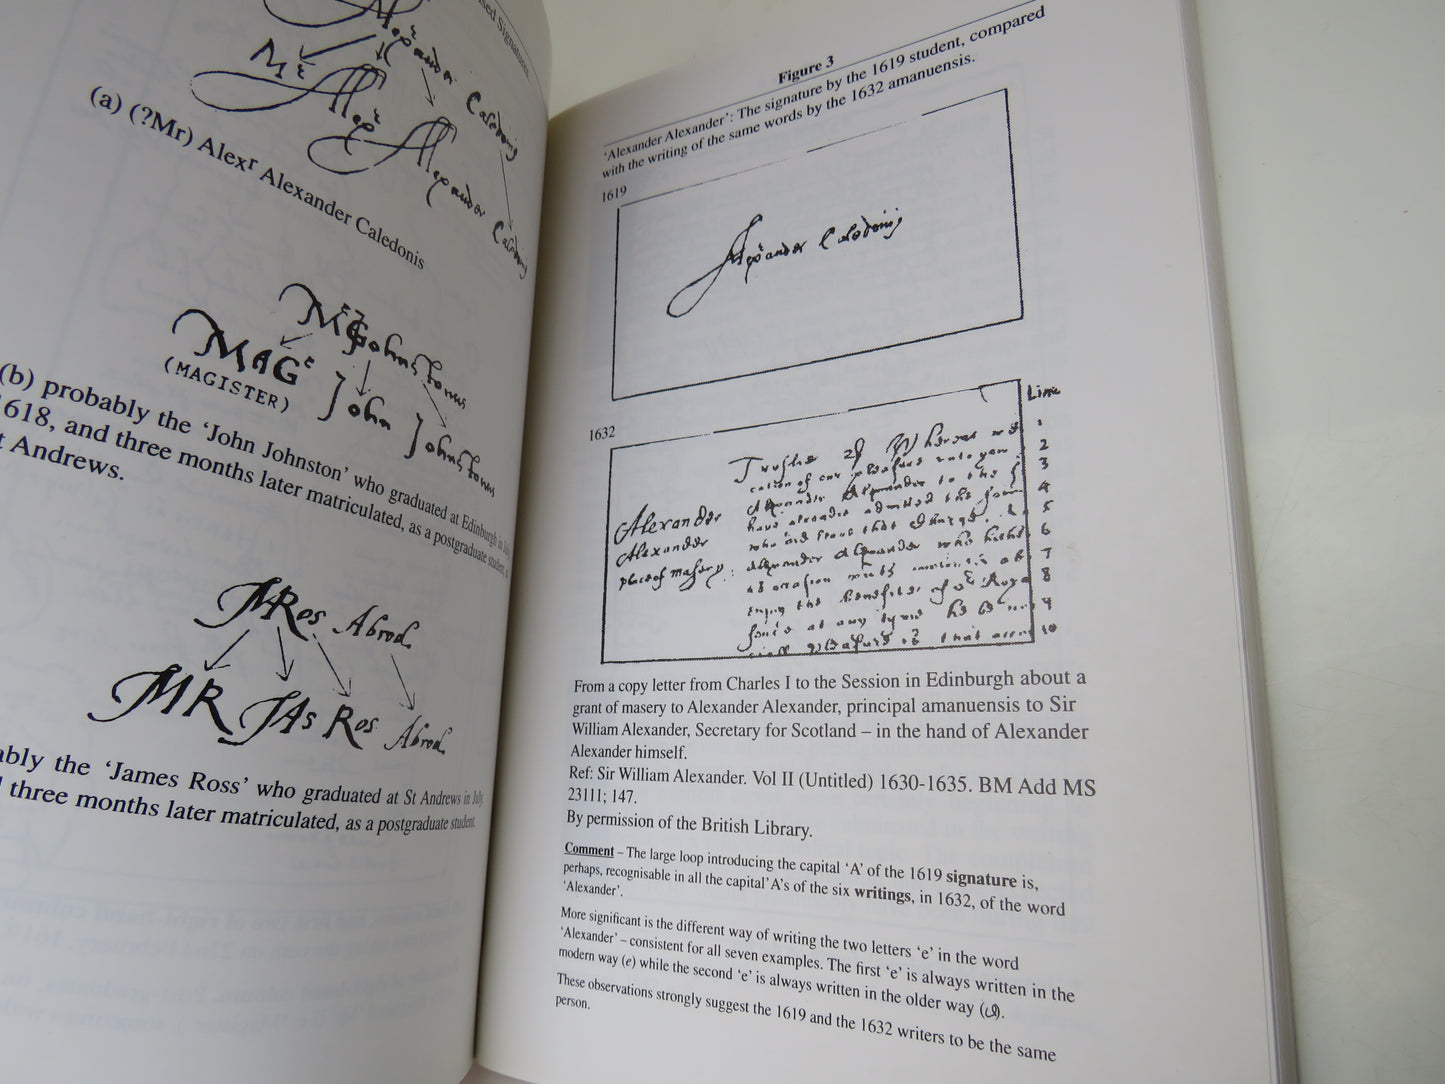 sed Signatures
Alexander Caledonis
Mr
Alexr Alexander Caledonis
(a) (?Mr) Alexr Alexander Caledonis
Johnstonus
MAGr John Johnstonus
(MAGISTER)
(b) probably the ‘John Johnston’ who graduated at Edinburgh in July
1618, and three months later matriculated, as a postgraduate student, at
t Andrews.
MRos Abrod.
MR JAs Ros Abrod.
ably the ‘James Ross’ who graduated at St Andrews in July,
three months later matriculated, as a postgraduate student.
Figure 3
‘Alexander Alexander’: The signature by the 1619 student, compared
with the writing of the same words by the 1632 amanuensis.
1619
Alexander Caledonij
1632
Line
1
2
3
4
5
6
7
8
9
10
Alexander
Alexander
place of masery:
Trustie
cation of our pleasure unto you
Alexander Alexander to the
have alreadie admitted the
who did frout that charge.
Alexander Alexander who hath
as occasion
the benefite of Roya
at any tyme he be
that
From a copy letter from Charles I to the Session in Edinburgh about a
grant of masery to Alexander Alexander, principal amanuensis to Sir
William Alexander, Secretary for Scotland – in the hand of Alexander
Alexander himself.
Ref: Sir William Alexander. Vol II (Untitled) 1630-1635. BM Add MS
23111; 147.
By permission of the British Library.
Comment – The large loop introducing the capital ‘A’ of the 1619 signature is,
perhaps, recognisable in all the capital‘A’s of the six writings, in 1632, of the word
‘Alexander’.
More significant is the different way of writing the two letters ‘e’ in the word
‘Alexander’ – consistent for all seven examples. The first ‘e’ is always written in the
modern way (e) while the second ‘e’ is always written in the older way ( ).
These observations strongly suggest the 1619 and the 1632 writers to be the same
person.